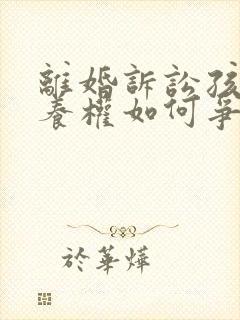 離婚訴訟孩
養權如何爭
於華燁